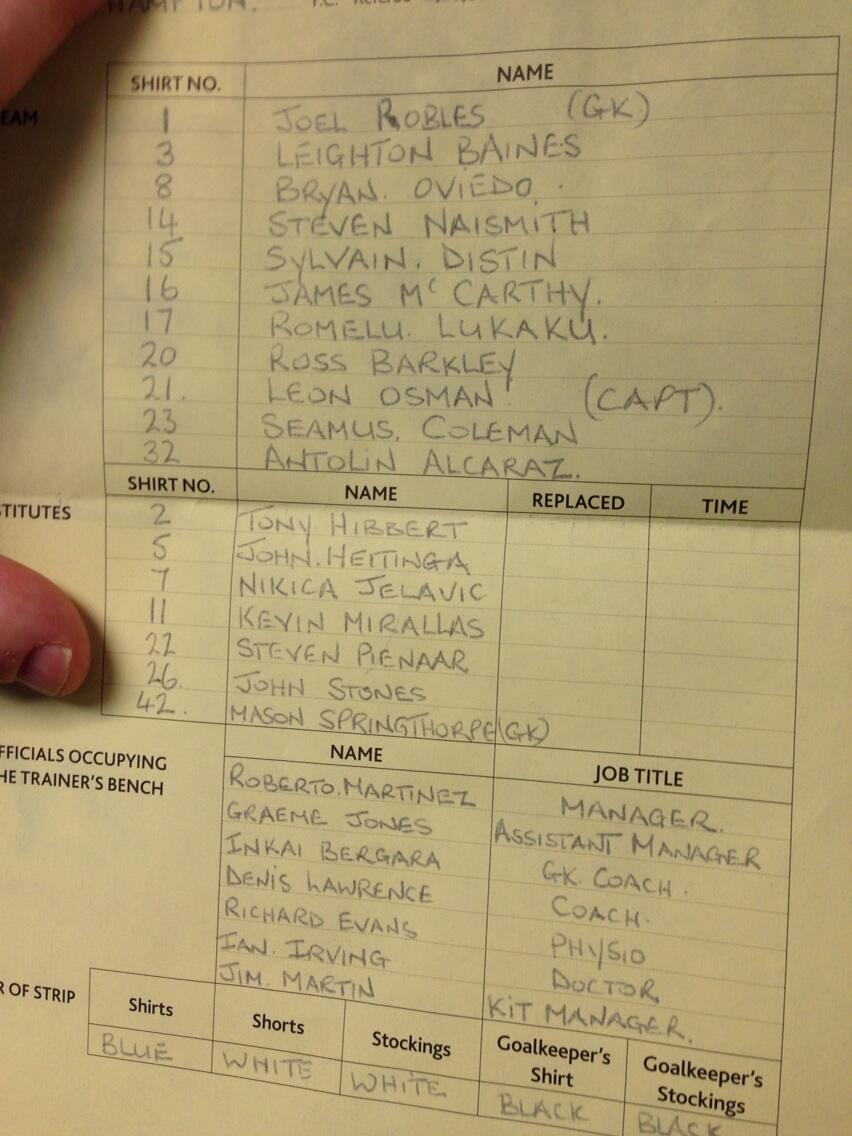 HAMPTON.
SHIRT NO. NAME
EAM
1 JOEL ROBLES (GK)
3 LEIGHTON BAINES
8 BRYAN. OVIEDO.
14 STEVEN NAISMITH
15 SYLVAIN. DISTIN
16 JAMES Mc CARTHY.
17 ROMELU. LUKAKU.
20 ROSS BARKLEY
21. LEON OSMAN (CAPT).
23 SEAMUS. COLEMAN
32 ANTOLIN ALCARAZ.
STITUTES
SHIRT NO. NAME REPLACED TIME
2 TONY HIBBERT
5 JOHN. HEITINGA
7 NIKICA JELAVIC
11 KEVIN MIRALLAS
22 STEVEN PIENAAR
26. JOHN STONES
42. MASON SPRINGTHORPE (GK)
FFICIALS OCCUPYING
HE TRAINER'S BENCH
NAME JOB TITLE
ROBERTO. MARTINEZ MANAGER.
GRAEME JONES ASSISTANT MANAGER
INKAI BERGARA GK COACH.
DENIS LAWRENCE COACH.
RICHARD EVANS PHYSIO
IAN. IRVING DOCTOR
JIM. MARTIN KIT MANAGER.
R OF STRIP
Shirts Shorts Stockings Goalkeeper's Shirt Goalkeeper's Stockings
BLUE WHITE WHITE BLACK BLACK